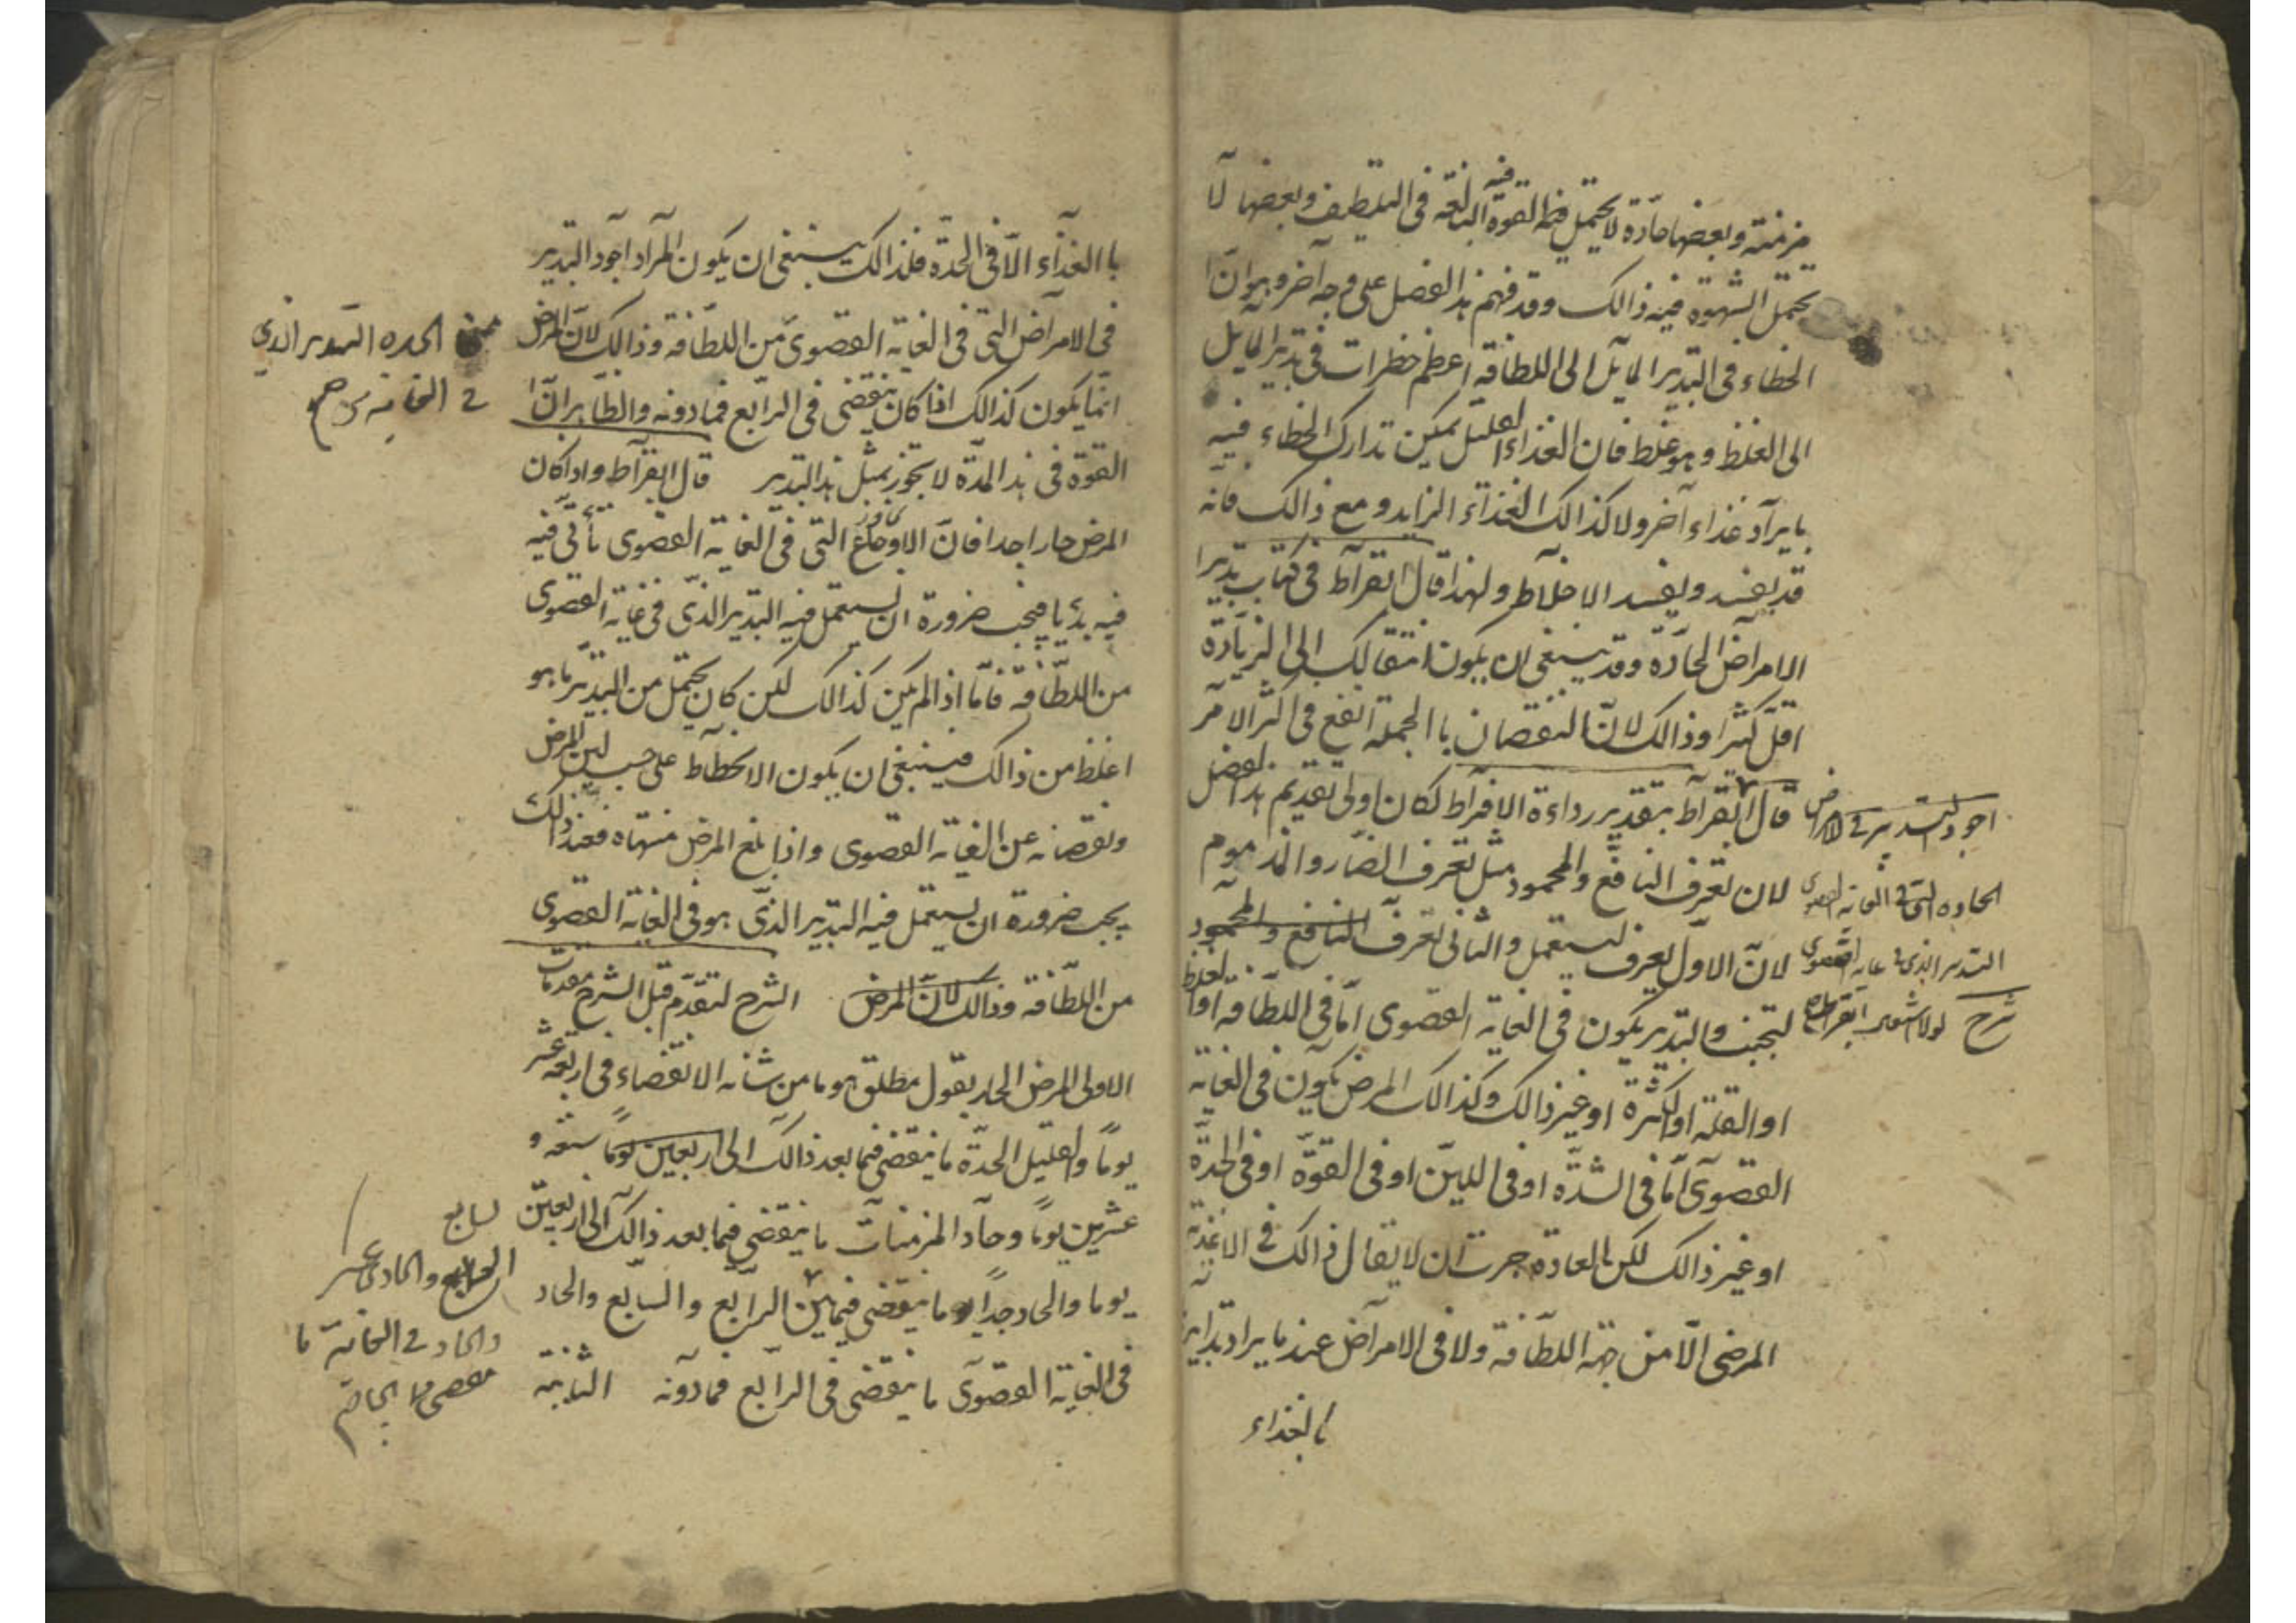 مزمنة وبعضها حادة لا يحتمل فيه القوة المبالغة فى التلطيف وبعضها لا
فيه
يحتمل الشهوة فيه ذالك وقد فهم هذا الفصل على وجه آخر وهو انّ
الخطاء فى التدبير المايل الى اللطافة اعظم خطرات فى تدبير المايل
الى الغلظ وهو غلط فان الغذاء القليل يمكن تدارك الخطاء فيه
بايراد غذاء آخر ولا كذالك الغذاء الزايد ومع ذالك فانه
قد يفسد ويفسد الاخلاط ولهذا قال ابقراط فى كتاب تدبير
الامراض الحادة وقد ينبغى ان يكون انتقالك الى الزيادة
اقل كثيرا وذالك لانّ النقصان باالجملة انفع فى اكثر الامر
قال ابقراط بتقدير رداءة الافراط لكان اولى تقديم هذا الفصل
لان تعرف النافع والمحمود مثل تعرف الضار والمذموم
لانّ الاول يعرف ليستعمل والثانى تعرف النافع والمحمود
لتجنب والتدبير يكون فى الغاية القصوى امّا فى اللطافة او الغلظ
او القلة او الكثرة او غير ذالك وكذالك المرض يكون فى الغاية
القصوى امّا فى الشدّة او فى اللين او فى القوّة او فى الحدّة
او غير ذالك لكن العادة جرت ان لا يقال ذالك فى الاغذية
المرضى الّا من جهة اللطافة ولا فى الامراض عند ما يراد تدابير
بالغذاء
اجود التدبير فى الامراض
الحادة التى فى الغاية القصوى
التدبير الذى فى غاية القصوى
شرح
باالغذاء الّا فى الحدّة فلذالك ينبغى ان يكون المراد اجود التدبير
فى الامراض التى فى الغاية القصوى من اللطافة وذالك لانّ المرض
انّما يكون كذالك اذا كان ينقضى فى الرابع فمادونه والظاهر انّ
القوة فى هذا المدّة لا تخور بمثل هذا التدبير قال ابقراط واذا كان
المرض حار اجدا فانّ الاوجاع التى فى الغاية القصوى تأتى فيه
فيه بديا فيجب ضرورة ان يستعمل فيه التدبير الذى فى غاية القصوى
من اللطّافة فامّا اذا لم يكن كذالك لكن كان يحتمل من التدبير ما هو
اغلظ من ذالك فينبغى ان يكون الانحطاط على حسب لين المرض
ونقصانه عن الغاية القصوى واذا بلغ المرض منتهاه فعند ذالك
يجب ضرورة ان يستعمل فيه التدبير الذى هو فى الغاية القصوى
من اللطّافة وذالك لانّ المرض الشرح لنقدّم قبل الشرح مقدمات
الاولى المرض الحاد بقول مطلق هو ما من شانه الانقضاء فى اربعة عشر
يوماً والقليل الحدّة ما ينقضى فيما بعد ذالك الى اربعين يوماً سبعة و
عشرين يوماً وحاد المزمنات ما ينقضى فيما بعد ذالك الى اربعين
يوما والحاد جداً ما ينقضى فيما بين الرابع والسابع والحاد
فى الغاية القصوى ما ينقضى فى الرابع فمادونه الثانية
الحده التدبير الذى
فى الغاية
لسابع
والحادى عشر
والحاد فى الغاية ما